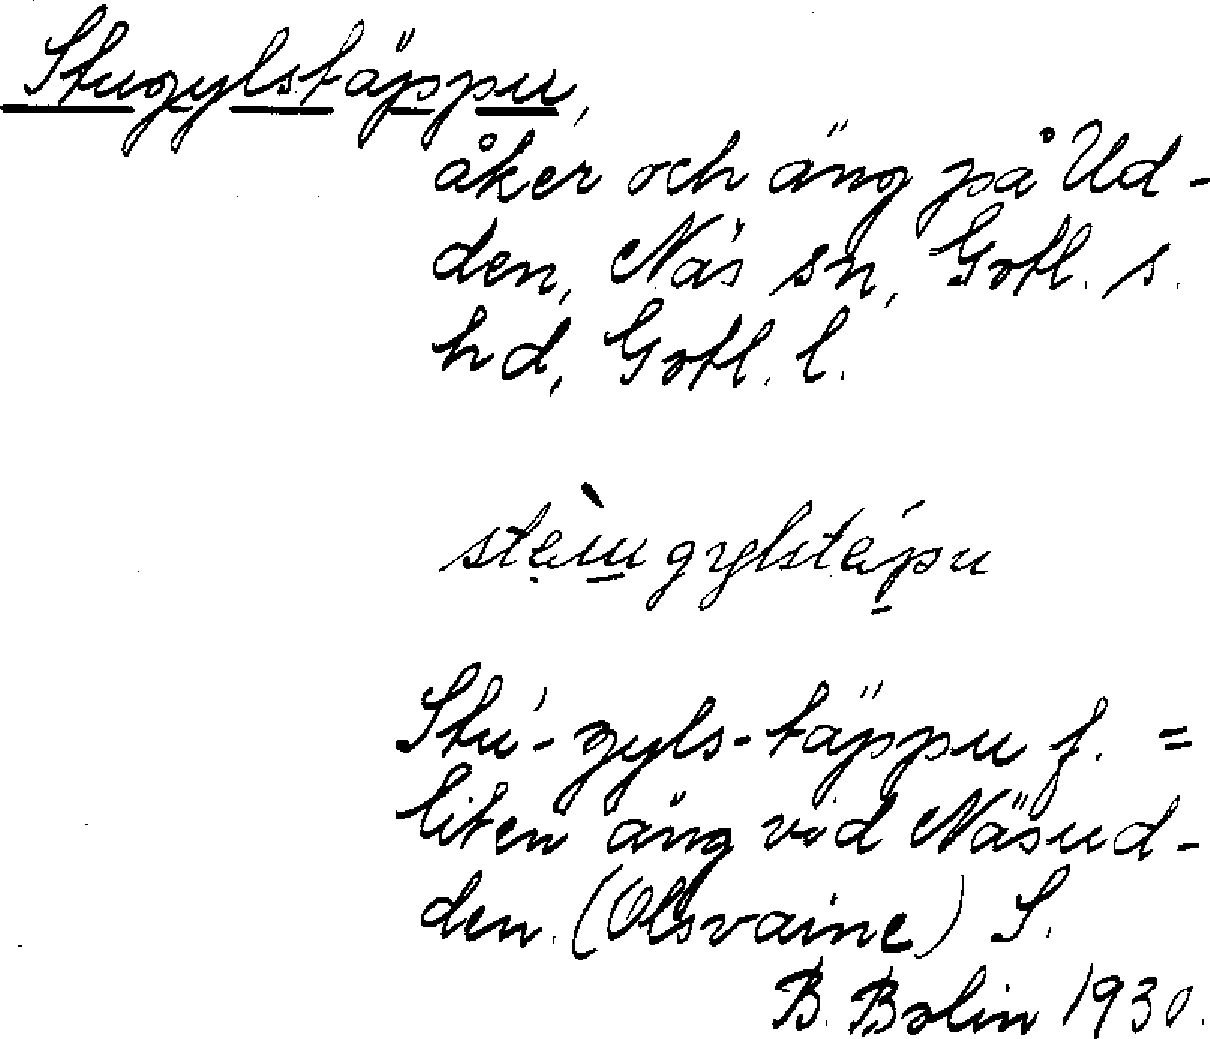 Stugylstäppu,
åker och äng på Ud-
den, Näs sn, Gotl. s.
hd, Gotl. l.
stèu̱gylstep̱u
Stú-gyls-täppu f. =
liten äng vid Näsud-
den. (Olsvaine) S.
B. Bolin 1930.